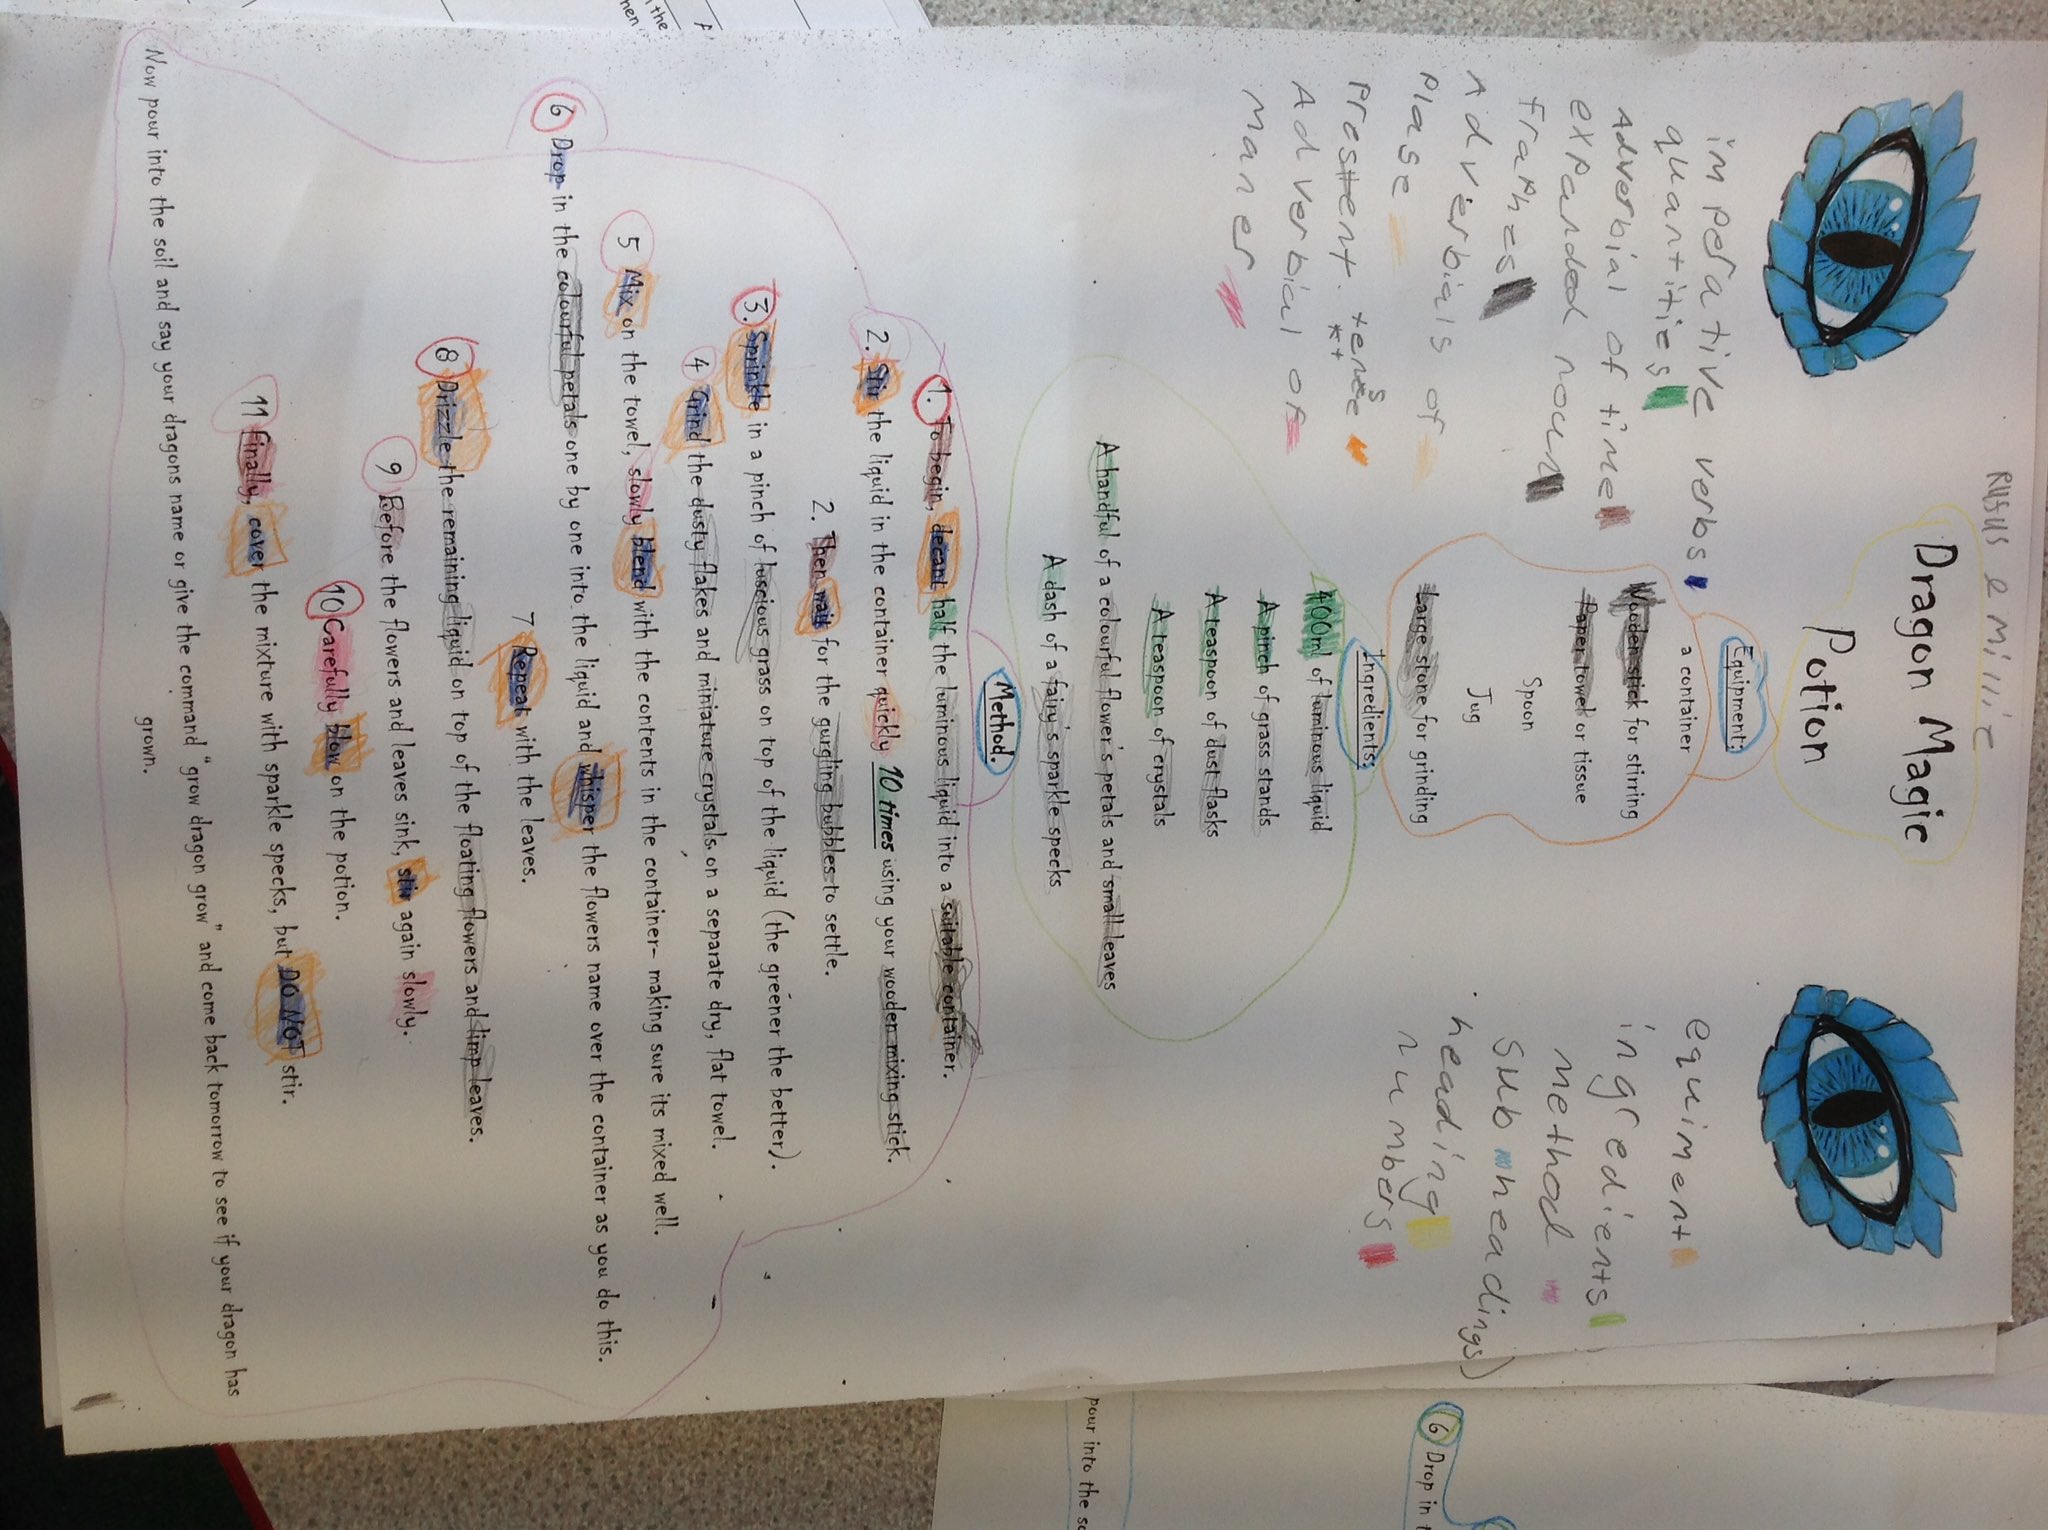 Rysu emillie
Dragon Magic
Potion
imperative verbs
quantities
Adverbial of time
expanded noun
fraphes
Advierbials of
plase
presttent. tense
Adverbial of
maner
equiment
ingredients
method
Sub headings)
heading
numbers
Equipment:
a container
Wooden stick for stirring
Paper towel or tissue
Spoon
Jug
Large stone for grinding
Ingredients:
400ml of luminous liquid
A pinch of grass stands
A teaspoon of dust flasks
A teaspoon of crystals
A handful of a colourful flower's petals and small leaves
A dash of a fairy's sparkle specks
Method.
1. To begin, decant half the luminous liquid into a suitable container.
2. Stir the liquid in the container quickly 10 times using your wooden mixing stick.
2. Then wait for the gurgling bubbles to settle.
3. Sprinkle in a pinch of luscious grass on top of the liquid (the greener the better).
4 Grind the dusty flakes and miniature crystals on a separate dry, flat towel.
5 Mix on the towel, slowly blend with the contents in the container- making sure its mixed well.
6 Drop in the colourful petals one by one into the liquid and whisper the flowers name over the container as you do this.
7 Repeat with the leaves.
8 Drizzle the remaining liquid on top of the floating flowers and limp leaves.
9 Before the flowers and leaves sink, stir again slowly.
10 Carefully blow on the potion.
11 Finally, cover the mixture with sparkle specks, but DO NOT stir.
Now pour into the soil and say your dragons name or give the command "grow dragon grow" and come back tomorrow to see if your dragon has
grown.
6 Drop in
pour into the so
the